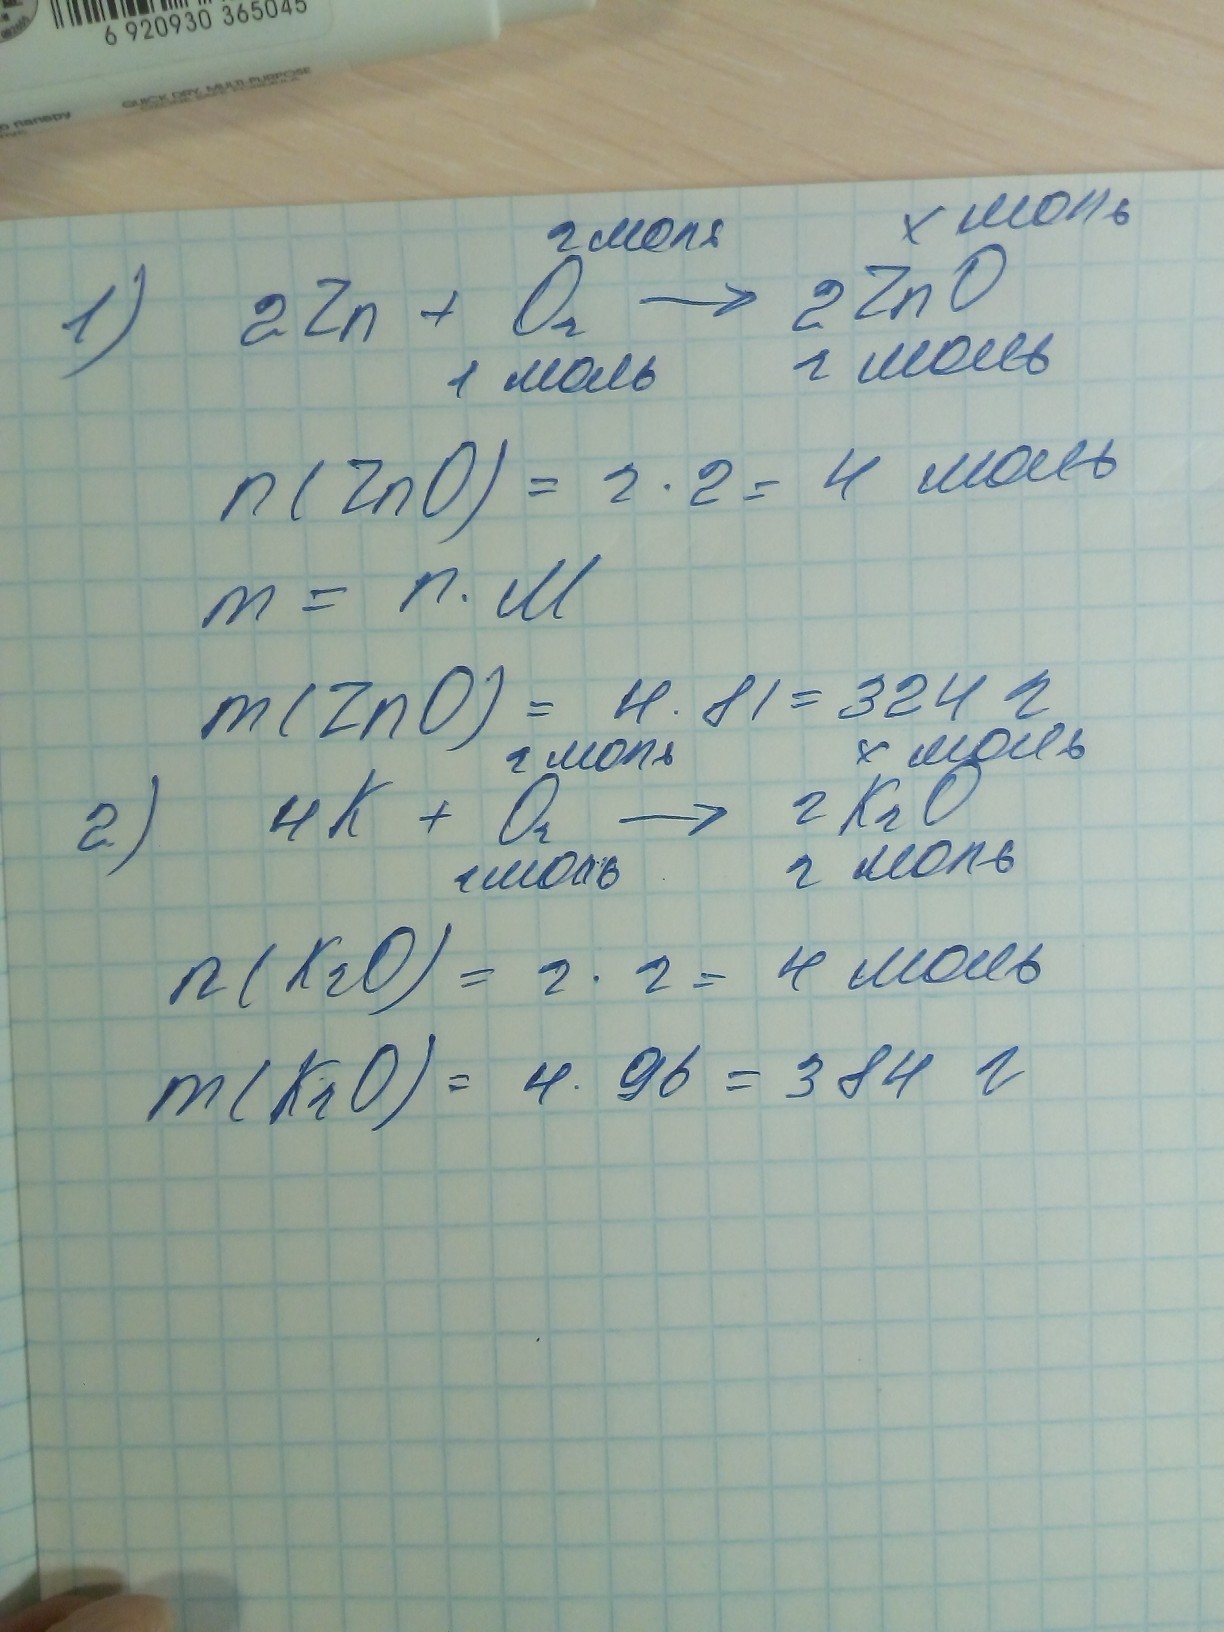 6 920930 365045
QUICK DRY, MULTI-PURPOSE
2 моля x моль
1) 2Zn + O₂ → 2ZnO
1 моль 2 моль
n(ZnO) = 2 · 2 = 4 моль
m = n · M
m(ZnO) = 4 · 81 = 324 г
2 моля x моль
2) 4K + O₂ → 2K₂O
1 моль 2 моль
n(K₂O) = 2 · 2 = 4 моль
m(K₂O) = 4 · 96 = 384 г